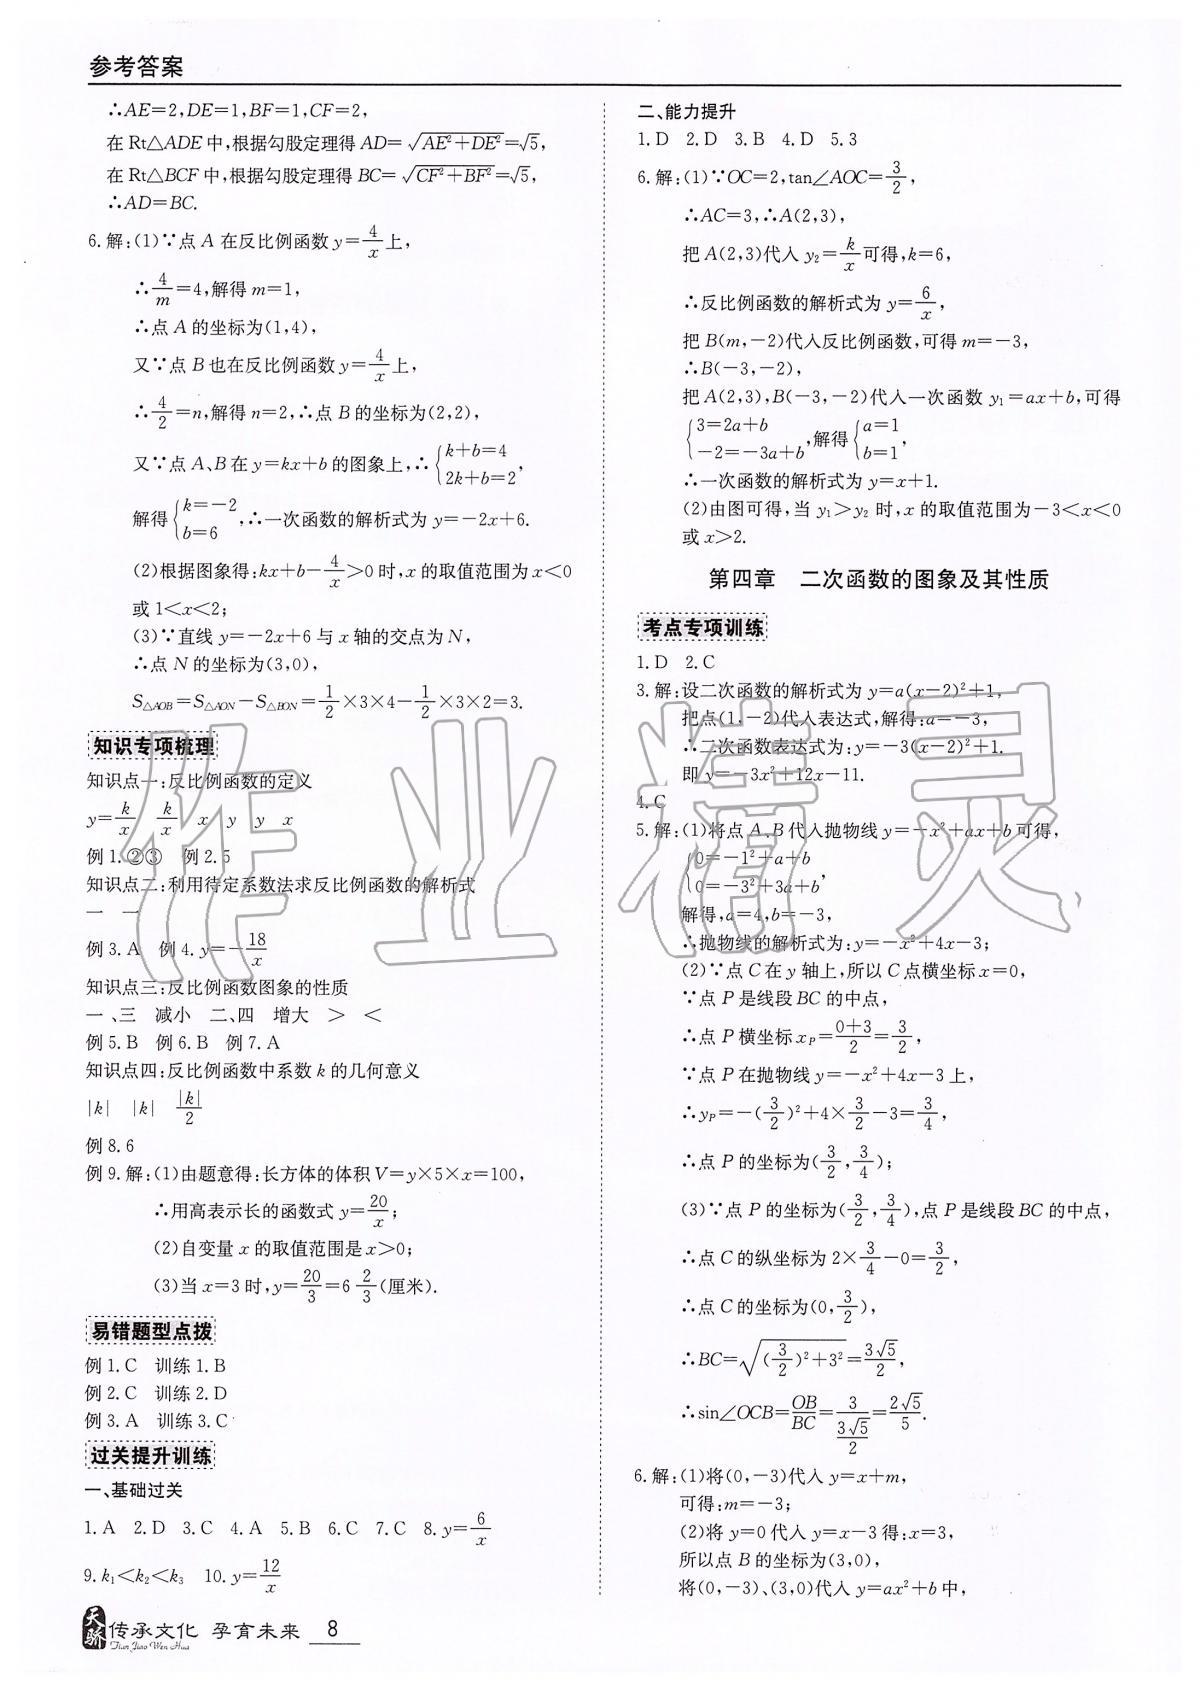 参考答案
∴AE=2,DE=1,BF=1,CF=2,
在 Rt△ADE 中,根据勾股定理得 AD=√(AE²+DE²)=√5,
在 Rt△BCF 中,根据勾股定理得 BC=√(CF²+BF²)=√5,
∴AD=BC.
6.解:(1)∵点 A 在反比例函数 y=4/x 上,
∴4/m=4,解得 m=1,
∴点 A 的坐标为(1,4),
又∵点 B 也在反比例函数 y=4/x 上,
∴4/2=n,解得 n=2,∴点 B 的坐标为(2,2),
又∵点 A、B 在 y=kx+b 的图象上,∴{k+b=4
2k+b=2,
解得{k=-2
b=6,∴一次函数的解析式为 y=-2x+6.
(2)根据图象得:kx+b-4/x>0 时,x 的取值范围为 x<0
或 1<x<2;
(3)∵直线 y=-2x+6 与 x 轴的交点为 N,
∴点 N 的坐标为(3,0),
S△AOB=S△AON-S△BON=1/2×3×4-1/2×3×2=3.
知识专项梳理
知识点一:反比例函数的定义
y=k/x k/x x y y x
例 1.②③ 例 2.5
知识点二:利用待定系数法求反比例函数的解析式
一 一
例 3.A 例 4.y=-18/x
知识点三:反比例函数图象的性质
一、三 减小 二、四 增大 > <
例 5.B 例 6.B 例 7.A
知识点四:反比例函数中系数 k 的几何意义
|k| |k| |k|/2
例 8.6
例 9.解:(1)由题意得:长方体的体积 V=y×5×x=100,
∴用高表示长的函数式 y=20/x;
(2)自变量 x 的取值范围是 x>0;
(3)当 x=3 时,y=20/3=6 2/3(厘米).
易错题型点拨
例 1.C 训练 1.B
例 2.C 训练 2.D
例 3.A 训练 3.C
过关提升训练
一、基础过关
1.A 2.D 3.C 4.A 5.B 6.C 7.C 8.y=6/x
9.k₁<k₂<k₃ 10.y=12/x
二、能力提升
1.D 2.D 3.B 4.D 5.3
6.解:(1)∵OC=2,tan∠AOC=3/2,
∴AC=3,∴A(2,3),
把 A(2,3)代入 y₂=k/x 可得,k=6,
∴反比例函数的解析式为 y=6/x,
把 B(m,-2)代入反比例函数,可得 m=-3,
∴B(-3,-2),
把 A(2,3),B(-3,-2)代入一次函数 y₁=ax+b,可得
{3=2a+b
-2=-3a+b,解得{a=1
b=1,
∴一次函数的解析式为 y=x+1.
(2)由图可得,当 y₁>y₂ 时,x 的取值范围为-3<x<0
或 x>2.
第四章 二次函数的图象及其性质
考点专项训练
1.D 2.C
3.解:设二次函数的解析式为 y=a(x-2)²+1,
把点(1,-2)代入表达式,解得:a=-3,
∴二次函数表达式为:y=-3(x-2)²+1.
即 y=-3x²+12x-11.
4.C
5.解:(1)将点 A、B 代入抛物线 y=-x²+ax+b 可得,
{0=-1²+a+b
0=-3²+3a+b,
解得,a=4,b=-3,
∴抛物线的解析式为:y=-x²+4x-3;
(2)∵点 C 在 y 轴上,所以 C 点横坐标 x=0,
∵点 P 是线段 BC 的中点,
∴点 P 横坐标 xP=(0+3)/2=3/2,
∵点 P 在抛物线 y=-x²+4x-3 上,
∴yP=-(3/2)²+4×3/2-3=3/4,
∴点 P 的坐标为(3/2,3/4);
(3)∵点 P 的坐标为(3/2,3/4),点 P 是线段 BC 的中点,
∴点 C 的纵坐标为 2×3/4-0=3/2,
∴点 C 的坐标为(0,3/2),
∴BC=√((3/2)²+3²)=3√5/2,
∴sin∠OCB=OB/BC=3/(3√5/2)=2√5/5.
6.解:(1)将(0,-3)代入 y=x+m,
可得:m=-3;
(2)将 y=0 代入 y=x-3 得:x=3,
所以点 B 的坐标为(3,0),
将(0,-3)、(3,0)代入 y=ax²+b 中,
作业精灵
天骄 传承文化 孕育未来 8
Tian Jiao Wen Hua